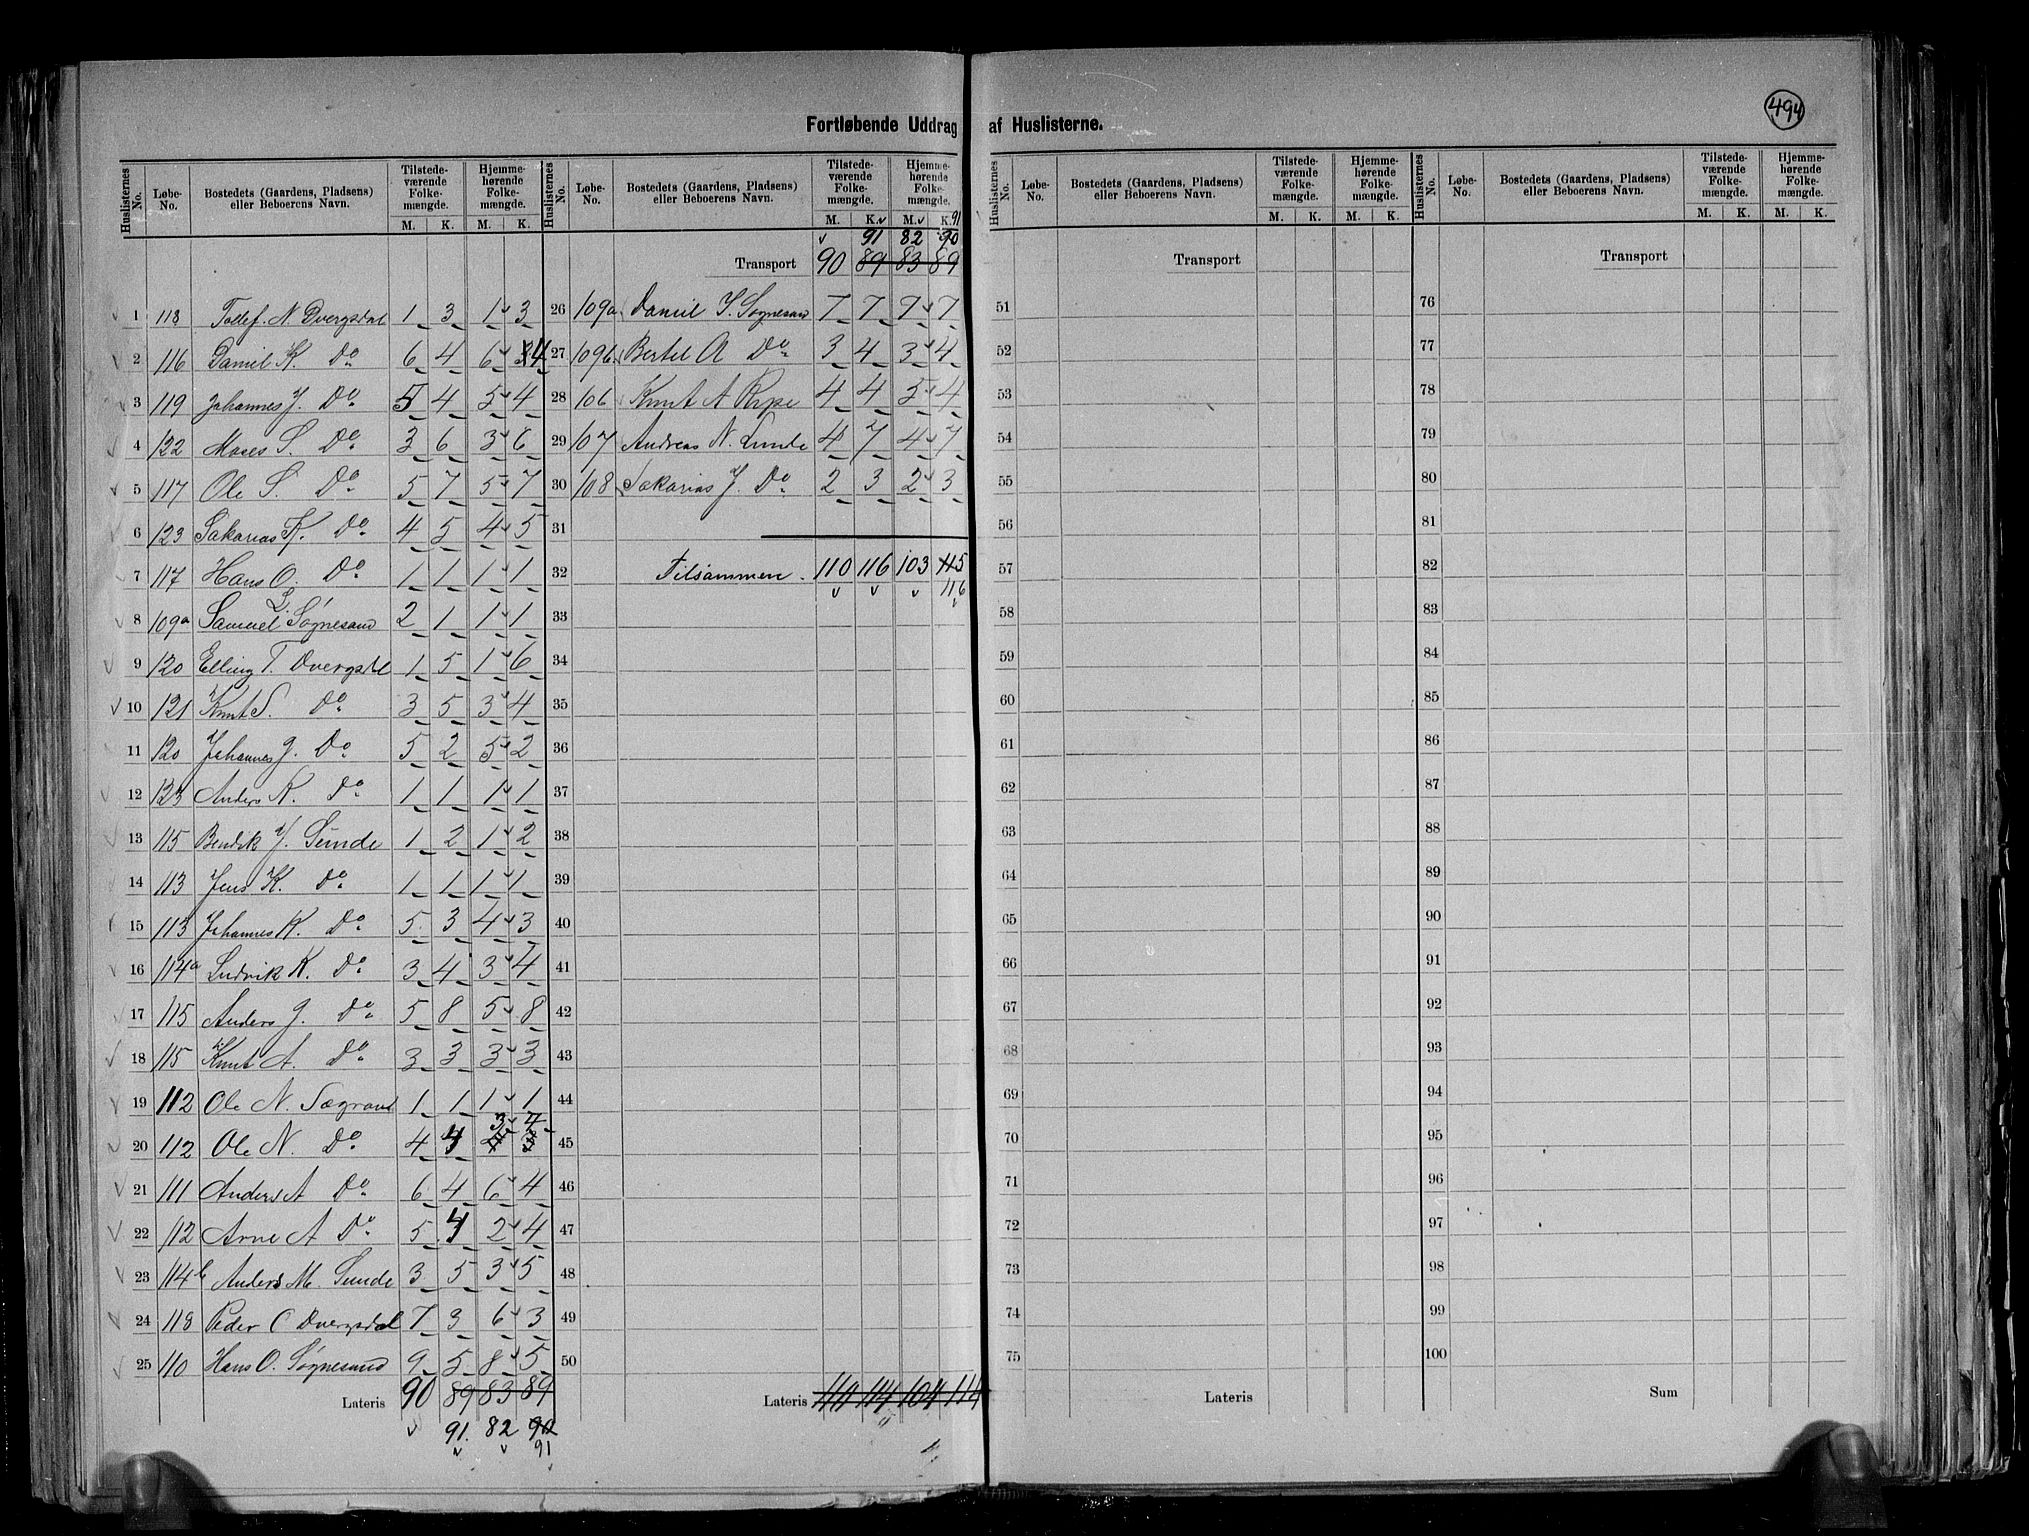 494
Fortløbende Uddrag af Huslisterne.
Huslisternes No. Løbe-No. Bostedets (Gaardens, Pladsens) eller Beboerens Navn. Tilstedeværende Folkemængde. M. K. Hjemmehørende Folkemængde. M. K.
1 118 Tollef N. Dvergsdal 1 3 1 3
2 116 Daniel K. Do 6 4 6 4
3 119 Johannes J. Do 5 4 5 4
4 122 Moses S. Do 3 6 3 6
5 117 Ole S. Do 5 7 5 7
6 123 Sakarias K. Do 4 5 4 5
7 117 Hans O. Do 1 1 1 1
8 109a Samuel L. Søgnesand 2 1 1 1
9 120 Elling T. Dvergsdal 1 5 1 6
10 121 Knut S. Do 3 5 3 4
11 120 Johannes J. Do 5 2 5 2
12 123 Anders K. Do 1 1 1 1
13 115 Bendik J. Sunde 1 2 1 2
14 113 Jens K. Do 1 1 1 1
15 113 Johannes K. Do 5 3 4 3
16 114a Ludvik K. Do 3 4 3 4
17 115 Anders J. Do 5 8 5 8
18 115 Knut A. Do 3 3 3 3
19 112 Ole N. Sægrand 1 1 1 1
20 112 Ole N. Do 4 4 3 4
21 111 Anders A Do 6 4 6 4
22 112 Arne A Do 5 4 2 4
23 114b Anders M. Sunde 3 5 3 5
24 118 Peder C Dvergsdal 7 3 6 3
25 110 Hans O. Søgnesand 9 5 8 5
Lateris 90 89 83 89
91 82 90
91
Huslisternes No. Løbe-No. Bostedets (Gaardens, Pladsens) eller Beboerens Navn. Tilstedeværende Folkemængde. M. K. Hjemmehørende Folkemængde. M. K.
91
91 82 90
Transport 90 89 83 89
26 109a Daniel J. Søgnesand 7 7 7 7
27 109b Bertel A Do 3 4 3 4
28 106 Knut A Ripe 4 4 5 4
29 107 Andreas N. Lunde 4 7 4 7
30 108 Sakarias J. Do 2 3 2 3
31
32 Tilsammen. 110 116 103 115
116
33
34
35
36
37
38
39
40
41
42
43
44
45
46
47
48
49
50
Lateris 110 114 104 114
Huslisternes No. Løbe-No. Bostedets (Gaardens, Pladsens) eller Beboerens Navn. Tilstedeværende Folkemængde. M. K. Hjemmehørende Folkemængde. M. K.
Transport
51
52
53
54
55
56
57
58
59
60
61
62
63
64
65
66
67
68
69
70
71
72
73
74
75
Lateris
Huslisternes No. Løbe-No. Bostedets (Gaardens, Pladsens) eller Beboerens Navn. Tilstedeværende Folkemængde. M. K. Hjemmehørende Folkemængde. M. K.
Transport
76
77
78
79
80
81
82
83
84
85
86
87
88
89
90
91
92
93
94
95
96
97
98
99
100
Sum